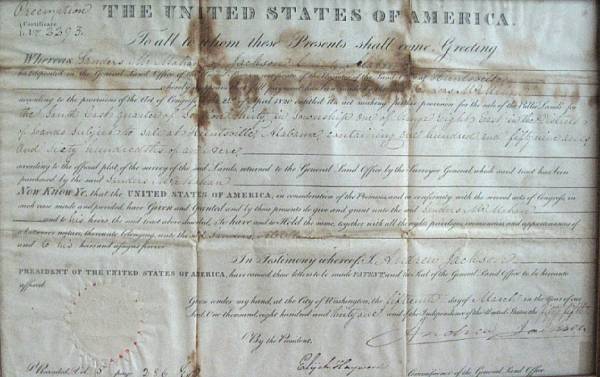 Preemption
Certificate
No. 3393.
THE UNITED STATES OF AMERICA.
To all to whom these Presents shall come, Greeting
Whereas Sanders Jackson County
deposited in the General Land Office of the Certificate of the Register of the Land Office at Huntsville
according to the provisions of the Act of Congress of the 24th of April 1820 entitled An act making further provision for the sale of the Public Lands for
the South East quarter of Section thirty in Township one of Range eight East in the District
of Lands subject to sale at Huntsville, Alabama, containing one hundred and fifty nine acres
and sixty hundredths of an acre
according to the official plat of the survey of the said Lands, returned to the General Land Office by the Surveyor General, which said tract has been
purchased by the said Sanders
Now Know Ye, that the UNITED STATES OF AMERICA, in consideration of the Premises, and in conformity with the several acts of Congress, in
such case made and provided, have Given and Granted and by these presents do give and grant unto the said Sanders
and to his heirs the said tract above described, To have and to Hold the same, together with all the rights, privileges, immunities, and appurtenances of
whatsoever nature, thereunto belonging, unto the said Sanders
and to his heirs and assigns forever
In Testimony whereof I, Andrew Jackson
PRESIDENT OF THE UNITED STATES OF AMERICA, have caused these letters to be made PATENT, and the Seal of the General Land Office to be hereunto
affixed.
Given under my hand, at the City of Washington, the fifteenth day of March in the Year of our
Lord, One thousand, eight hundred and thirty four and of the Independence of the United States the fifty eighth
Andrew Jackson
By the President,
Elijah Hayward
Commissioner of the General Land Office.
Recorded, Vol. 5 page 286